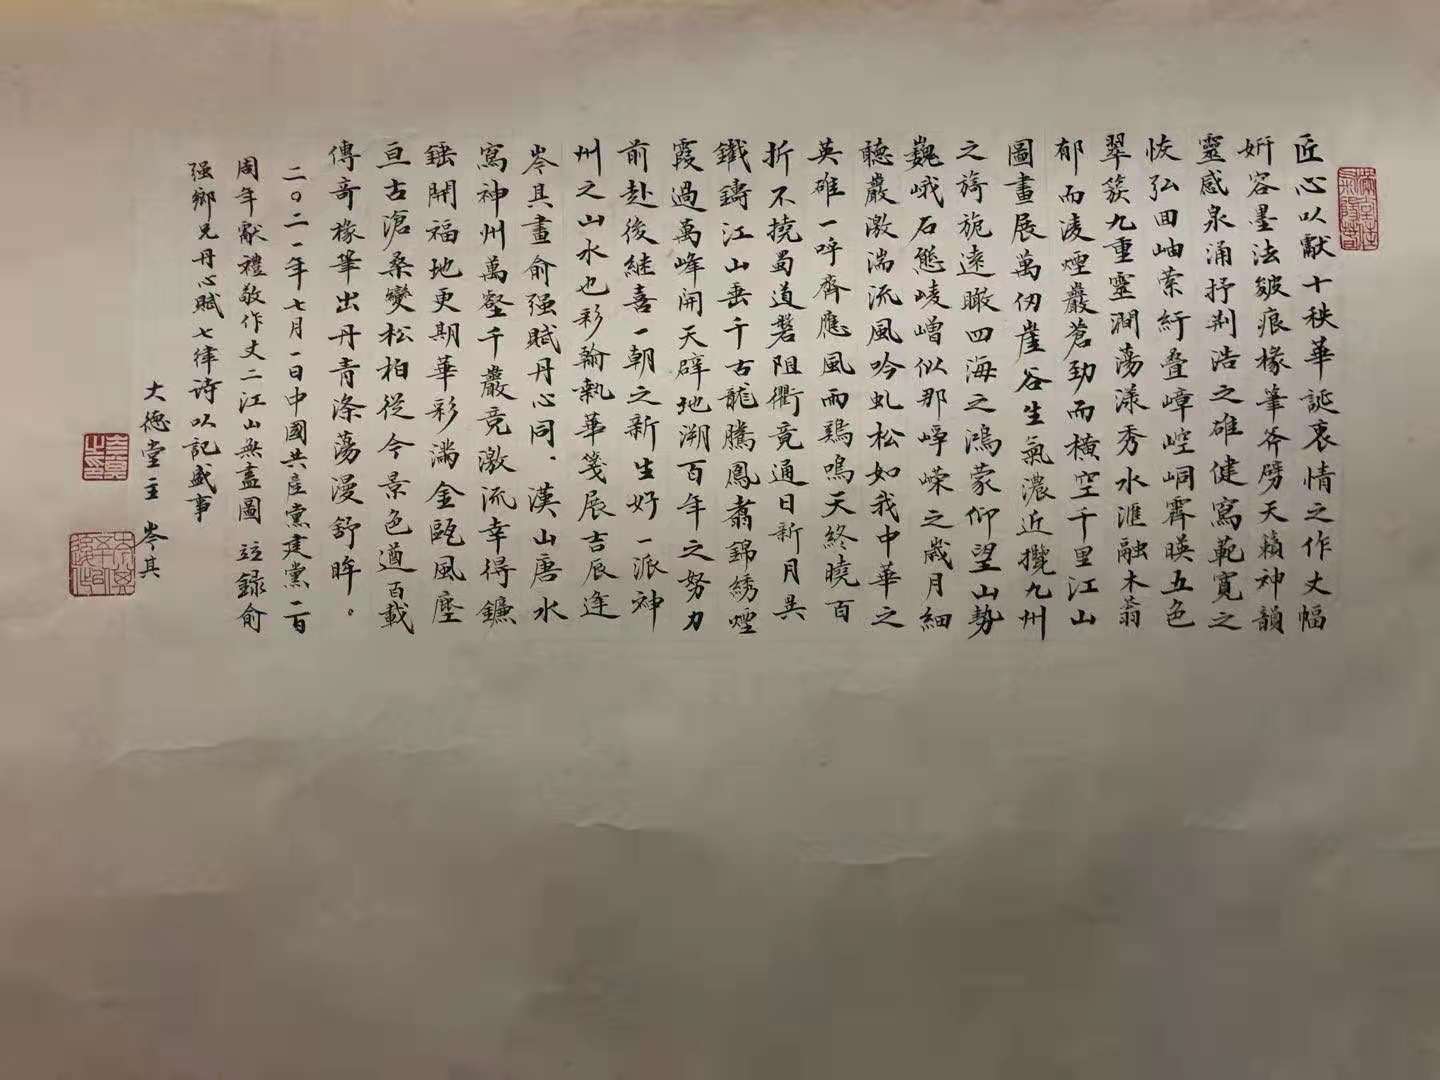 匠心以獻十秩華誕衷情之作丈幅
妍容墨法皴痕椽筆斧劈天籟神韻
靈感泉涌抒荆浩之雄健寫範寬之
恢弘回岫縈紆疊嶂崆峒霽暎五色
翠簇九重靈澗蕩漾秀水滙融木蓊
郁而淩煙巖蒼勁而橫空千里江山
圖畫展萬仞崖谷生氣濃近攬九州
之旖旎遠瞰四海之鴻蒙仰望山勢
巍峨石態崚嶒似那崢嶸之歲月細
聽巖激湍流風吟虬松如我中華之
英雄一呼齊應風雨鷄鳴天終曉百
折不撓蜀道磐阻衢竟通日新月異
鐵鑄江山垂千古龍騰鳳翥錦綉煙
霞過萬峰開天辟地溯百年之努力
前赴後繼喜一朝之新生好一派神
州之山水也彩翰執華箋展吉辰逢
岑其畫俞强賦丹心同漢山唐水
寫神州萬壑千巖竞激流幸得鐮
錘開福地更期華彩滿金甌風塵
亘古滄桑變松柏從今景色遒百載
傳奇椽筆出丹青滌蕩漫舒眸。
二〇二一年七月一日中國共産黨建黨一百
周年獻禮敬作丈二江山無盡圖 竝録俞
强鄉兄丹心賦七律詩以記盛事
大德堂主 岑其